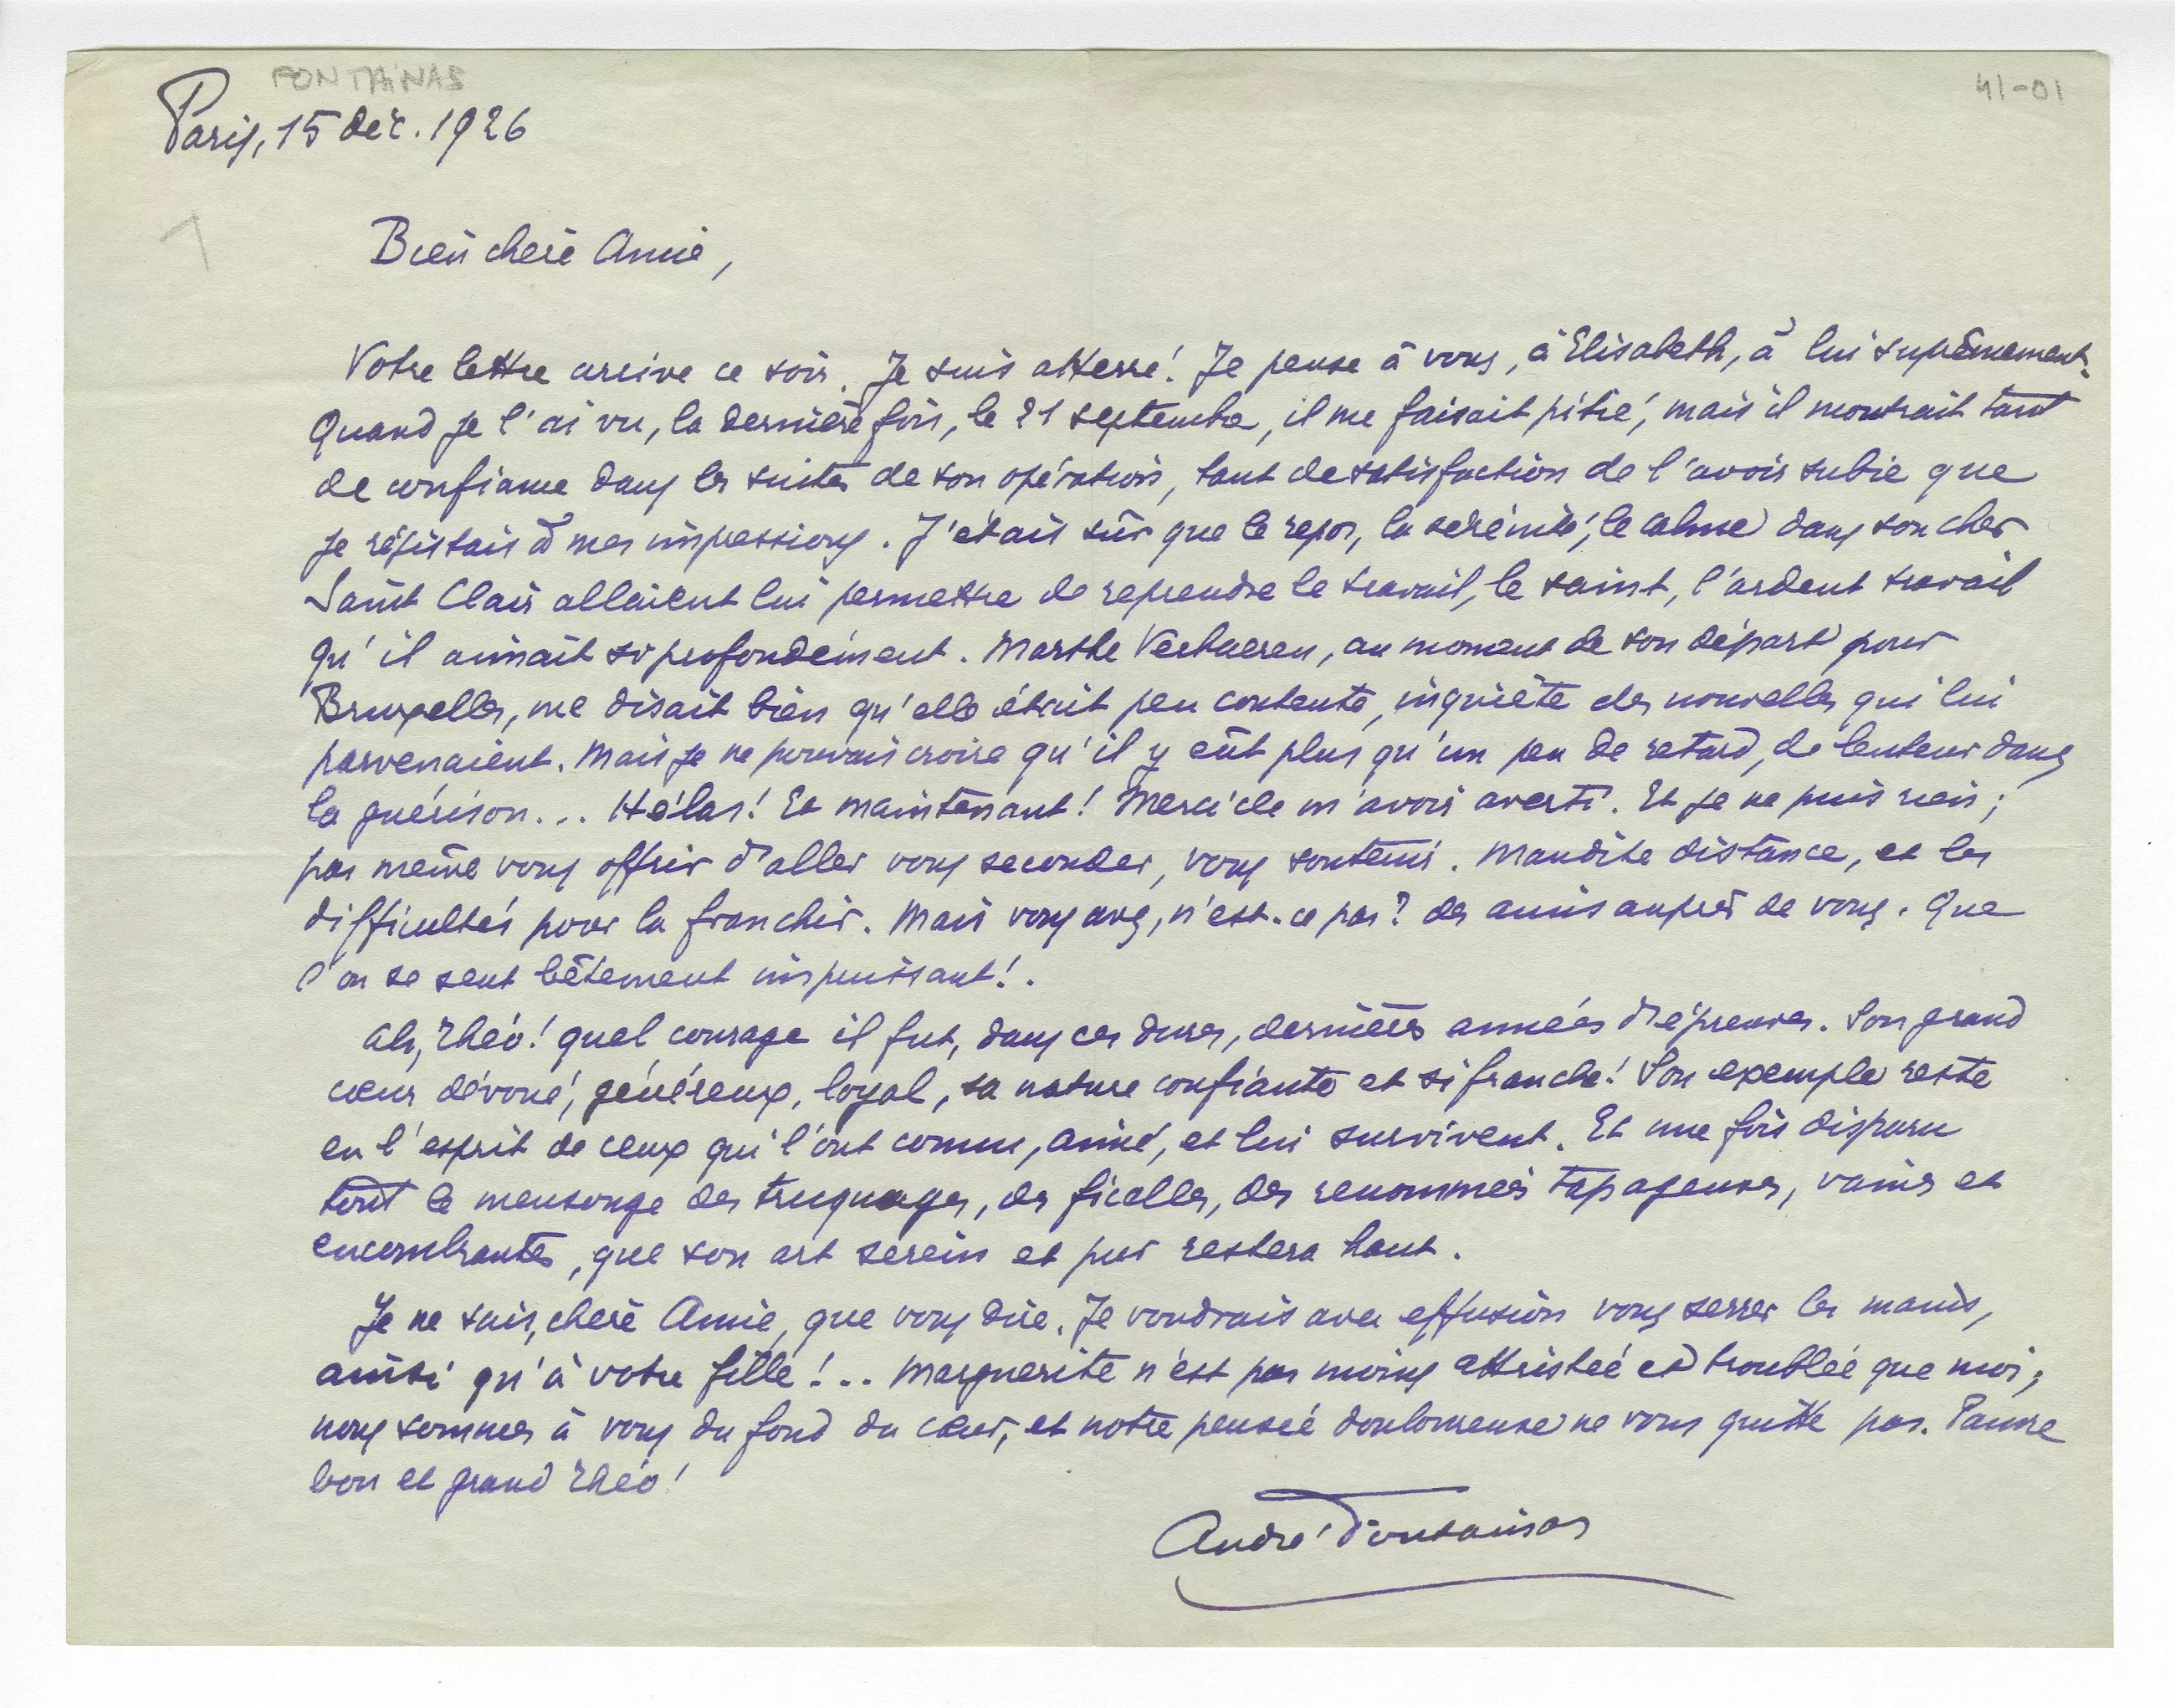 FONTAINAS
41-01
Paris, 15 déc. 1926
1
Bien chère Amie,
Votre lettre arrive ce soir. Je suis atterré! Je pense à vous, à Elisabeth, à lui suprêmement.
Quand je l'ai vu, la dernière fois, le 21 septembre, il me faisait pitié, mais il montrait tant
de confiance dans les suites de son opération, tant de satisfaction de l'avoir subie que
je résistais à mes impressions. J'étais sûr que le repos, la sérénité, le calme dans son cher
Saint Clair allaient lui permettre de reprendre le travail, le saint, l'ardent travail
qu'il aimait si profondément. Marthe Verhaeren, au moment de son départ pour
Bruxelles, me disait bien qu'elle était peu contente, inquiète des nouvelles qui lui
parvenaient. Mais je ne pouvais croire qu'il y eût plus qu'un peu de retard, de lenteur dans
la guérison... Hélas! Et maintenant! Merci de m'avoir averti. Et je ne puis rien;
pas même vous offrir d'aller vous seconder, vous soutenir. Maudite distance, et les
difficultés pour la franchir. Mais vous avez, n'est-ce pas? des amis auprès de vous. Que
l'on se sent bêtement impuissant!.
Ah, Théo! quel courage il fut, dans ces dures, dernières années d'épreuves. Son grand
cœur dévoué, généreux, loyal, sa nature confiante et si franche! Son exemple reste
en l'esprit de ceux qui l'ont connu, aimé, et lui survivent. Et une fois disparu
tout le mensonge des truquages, des ficelles, des renommées tapageuses, vaines et
encombrantes, que son art serein et pur restera haut.
Je ne sais, chère Amie, que vous dire. Je voudrais avec effusion vous serrer les mains,
ainsi qu'à votre fille!.. Marguerite n'est pas moins attristée et troublée que moi;
nous sommes à vous du fond du cœur, et notre pensée douloureuse ne vous quitte pas. Pauvre
bon et grand Théo!
André Fontainas